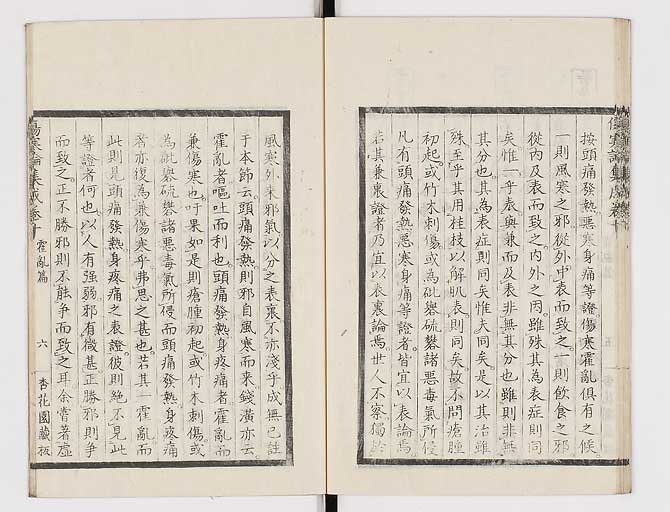 按頭痛發熱惡寒身痛等證傷寒霍亂俱有之候
一則風寒之邪從外中表而致之一則飮食之邪
從內及表而致之內外之因雖殊其為表症則同
矣惟一乎表與兼而及表非無其分也雖則非無
其分也其為表症則同矣惟夫同矣是以其治雖
殊至乎其用桂枝以解肌表則同矣故不問瘡腫
初起或竹木刺傷或為砒礜硫礬諸惡毒氣所侵
凡有頭痛發熱惡寒身痛等證者皆宜以表論焉
若其兼裏證者乃宜以表裏論焉世人不察獨
風寒外來邪氣以分之表裏不亦淺乎成無已註
于本節云頭痛發熱則邪自風寒而來錢潢亦云
霍亂者嘔吐而利也頭痛發熱身疼痛者霍亂而
兼傷寒也吁果如是則瘡腫初起或竹木刺傷或
為砒礜硫礬諸惡毒氣所侵而頭痛發熱身疼痛
者亦復為兼傷寒乎弗思之甚也若其一霍亂而
此則見頭痛發熱身疼痛之表證彼則絕不見此
等證者何也以人有强弱邪有微甚正勝邪則爭
而致之正不勝邪則不能爭而致之耳余嘗著虛
傷寒論集成卷十 霍亂篇 六 杏花園藏板